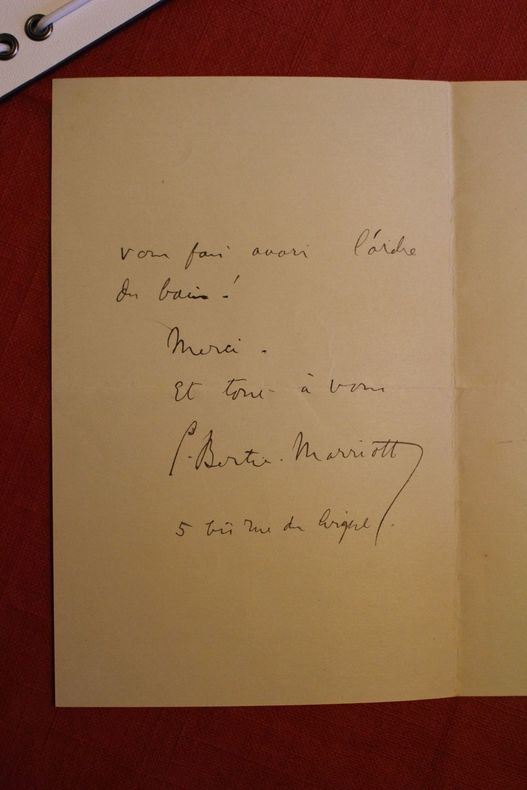 vous fais avoir l'ordre
du bain !
Merci.
Et tout à vous
C. Berthe. Marriott
5 bis rue du Cirque.